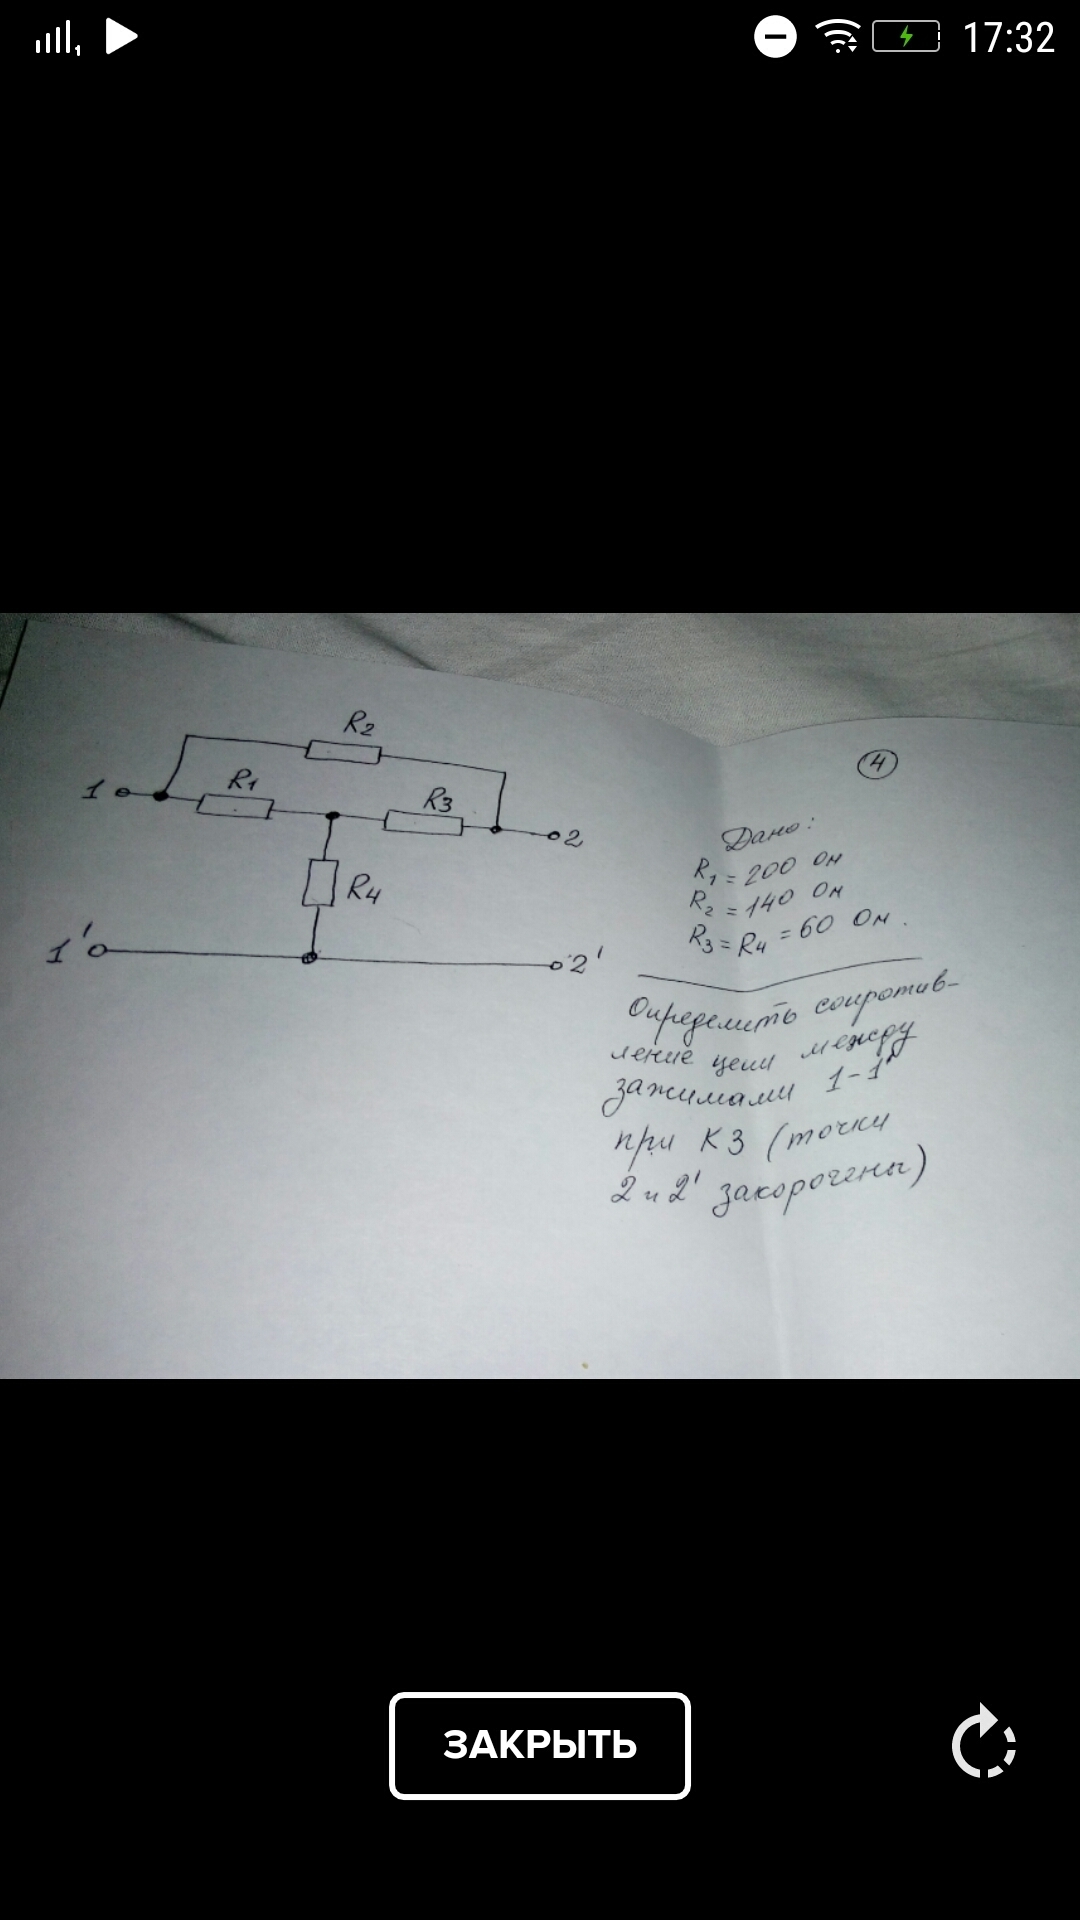 17:32
R2
R1
R3
1
2
R4
1'
2'
4
Дано:
R1 = 200 Ом
R2 = 140 Ом
R3 = R4 = 60 Ом.
Определить сопротив-
ление цепи между
зажимами 1-1'
при КЗ (точки
2 и 2' закорочены)
ЗАКРЫТЬ